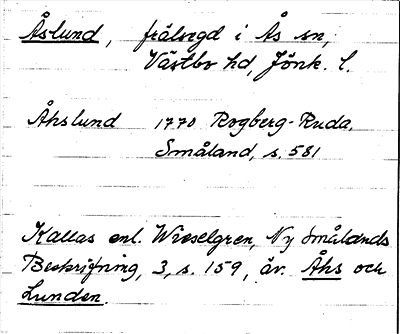 Åslund, frälsegd i Ås sn,
Västbo hd, Jönk. l.
Åhslund 1770 Rogberg-Ruda,
Småland, s. 581
Kallas enl. Wieselgren, Ny Smålands
Beskrifning, 3, s. 159, äv. Åhs och
Lunden.